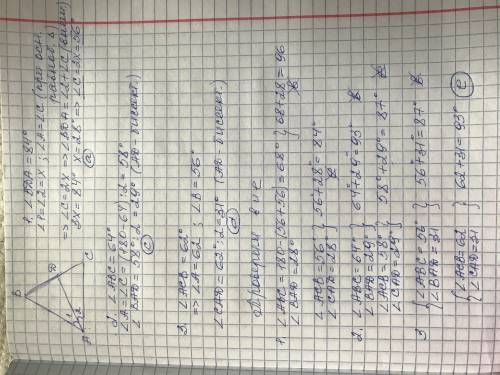 B
D
A
C
1
2
1. ∠BDA = 84°
∠1=∠2=x ; ∠A=∠C (при осн.
равноб. Δ)
=> ∠C=2x => ∠BDA=∠2+∠C (внеш)
3x=84° x=28° => ∠C=2x=56°
(a)
2. ∠ABC=64°
∠A=∠C=(180-64):2=58°
∠BAD=58°:2=29° (AD-биссект.)
(c)
3. ∠ACB=62°
=> ∠A=62 ; ∠B=56°
∠CAD=62°:2=31° (AD-биссект.)
(d)
Проверяем b и e
1. ∠ABC=180-(56+56)=68° } 68+28=96
∠BAD=28° b
∠ACB=56 } 56+28=84°
∠CAD=28 e
2. ∠ABC=64° } 64+29=93° b
∠BAD=29°
∠ACB=58° } 58°+29°=87° e
∠CAD=29°
3 {∠ABC=56° } 56+31=87° b
∠BAD=31
{∠ACB=62 } 62+31=93° (e)
∠CAD=31